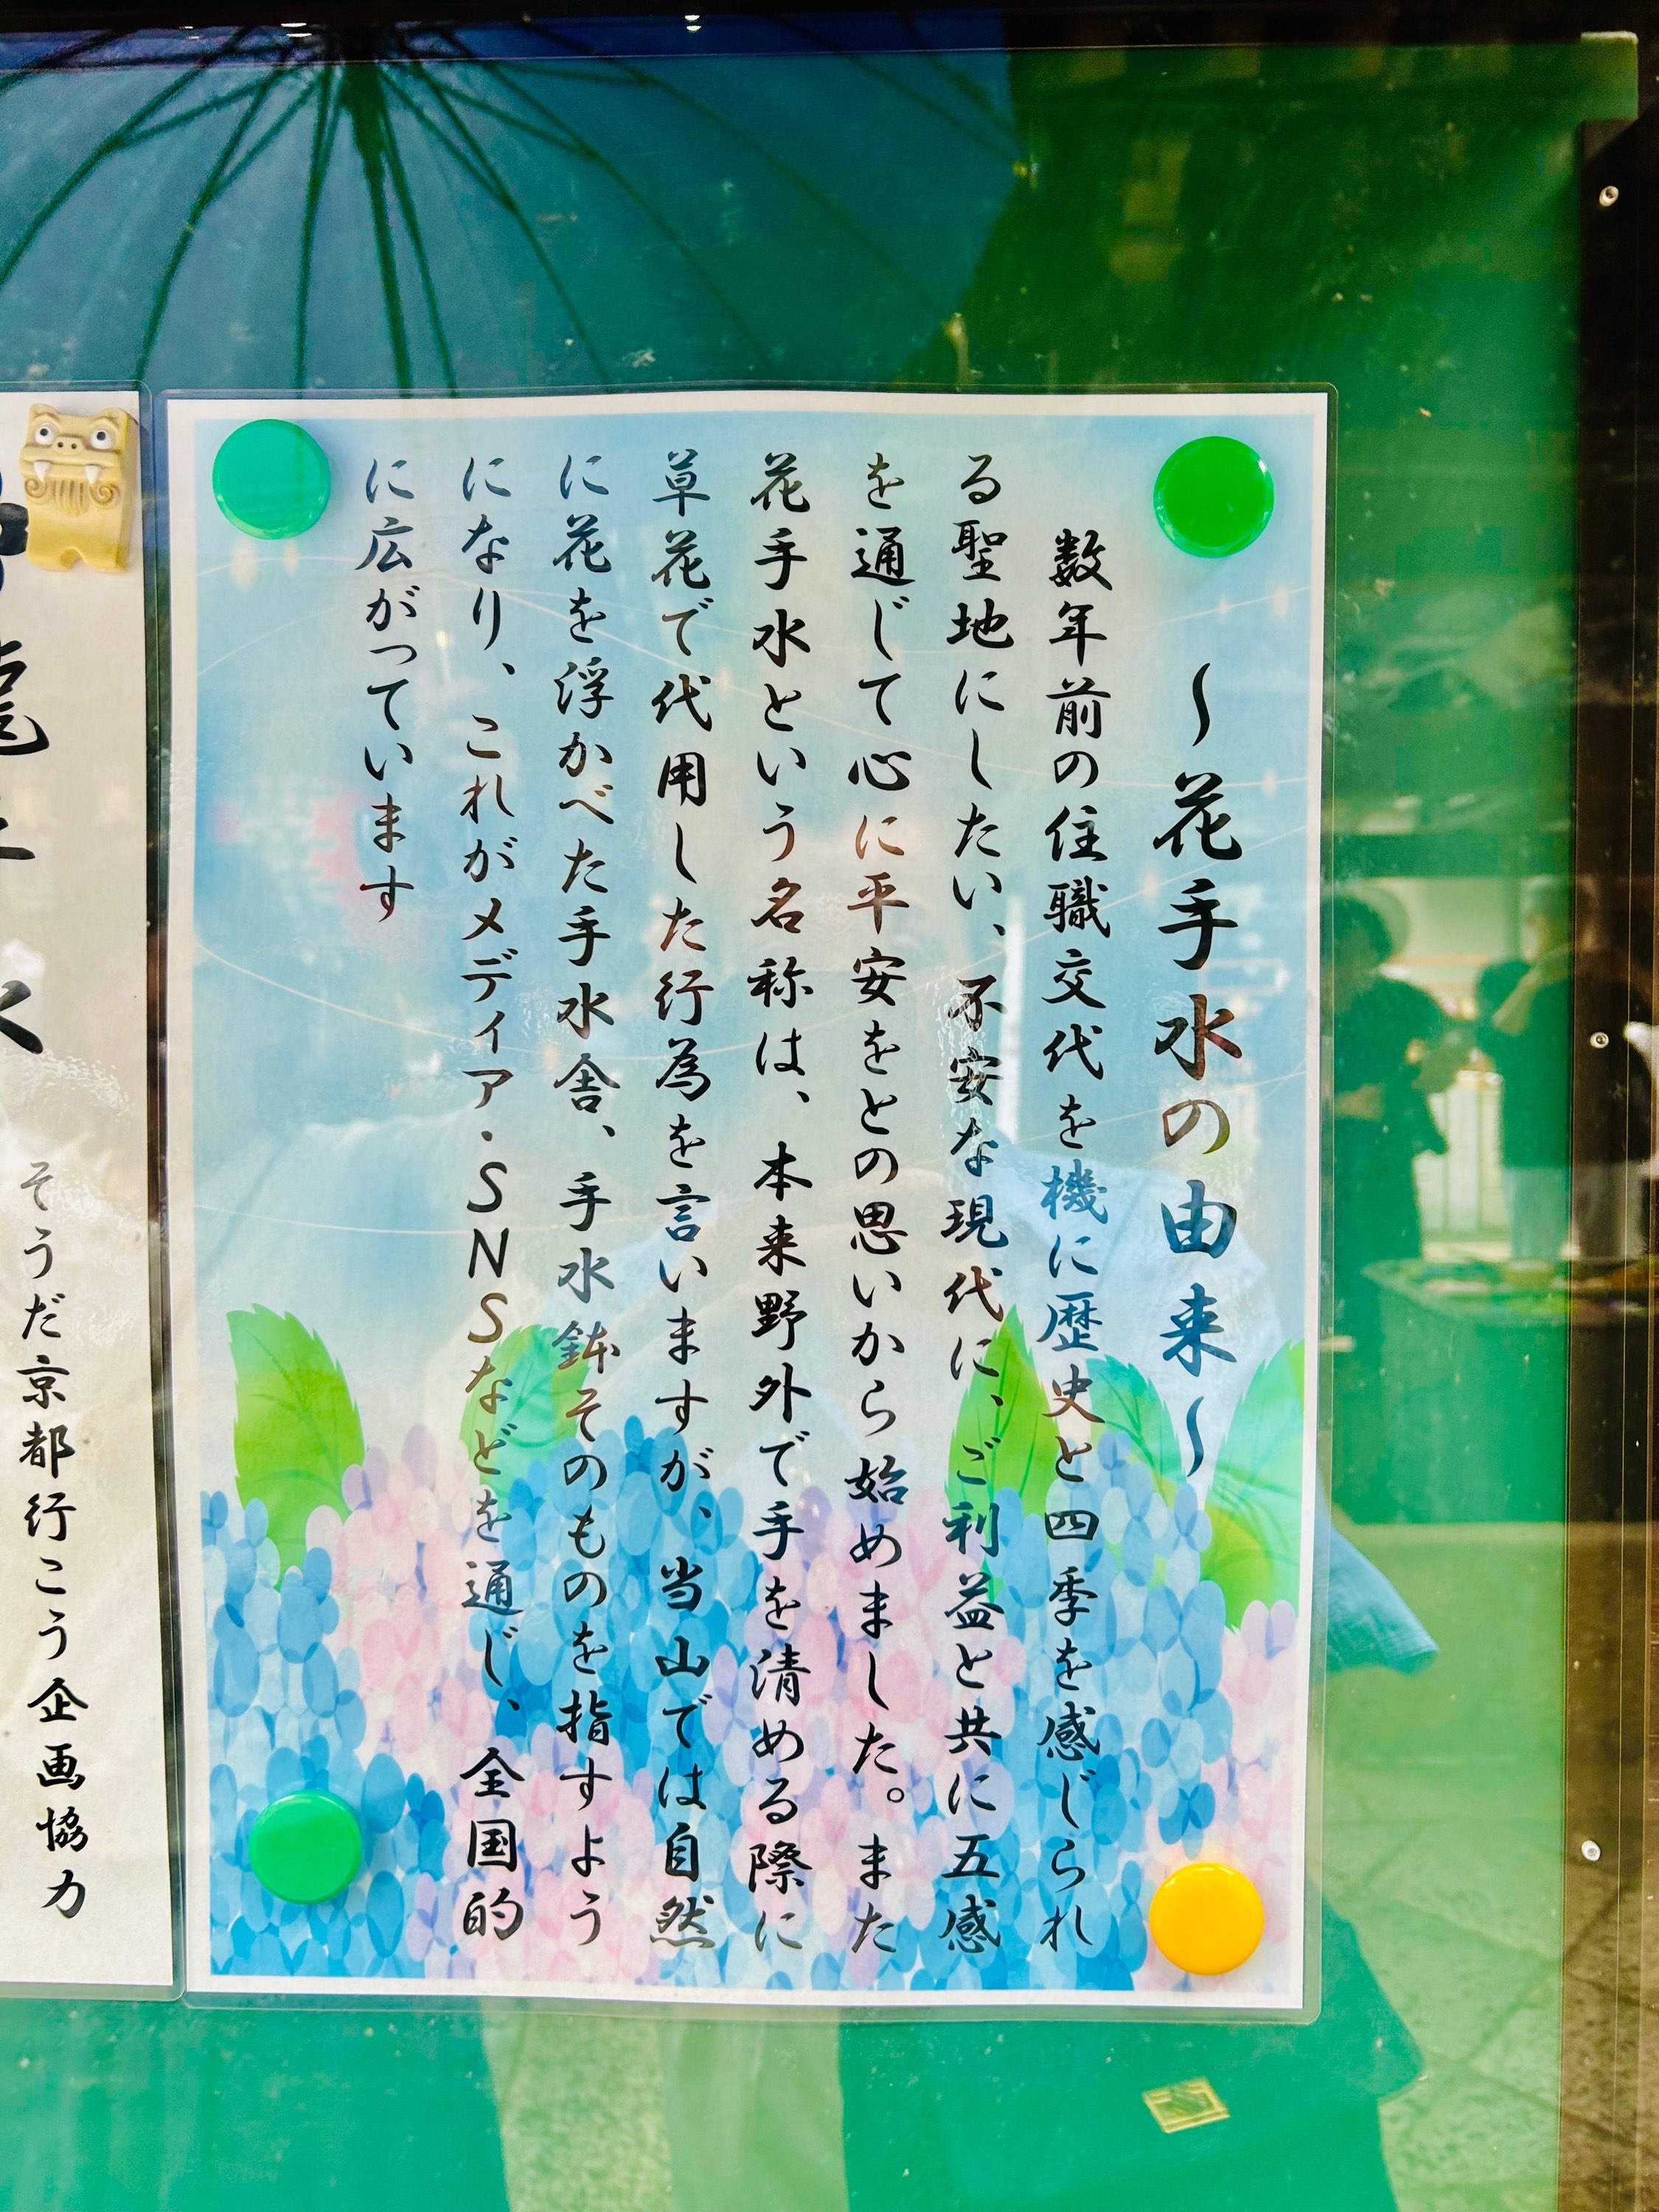 ～花手水の由来～
数年前の住職交代を機に歴史と四季を感じられ
る聖地にしたい、不安な現代に、ご利益と共に五感
を通じて心に平安をとの思いから始めました。また
花手水という名称は、本来野外で手を清める際に
草花で代用した行為を言いますが、当山では自然
に花を浮かべた手水舎、手水鉢そのものを指すよう
になり、これがメディア・SNSなどを通じ、全国的
に広がっています
そうだ京都行こう企画協力